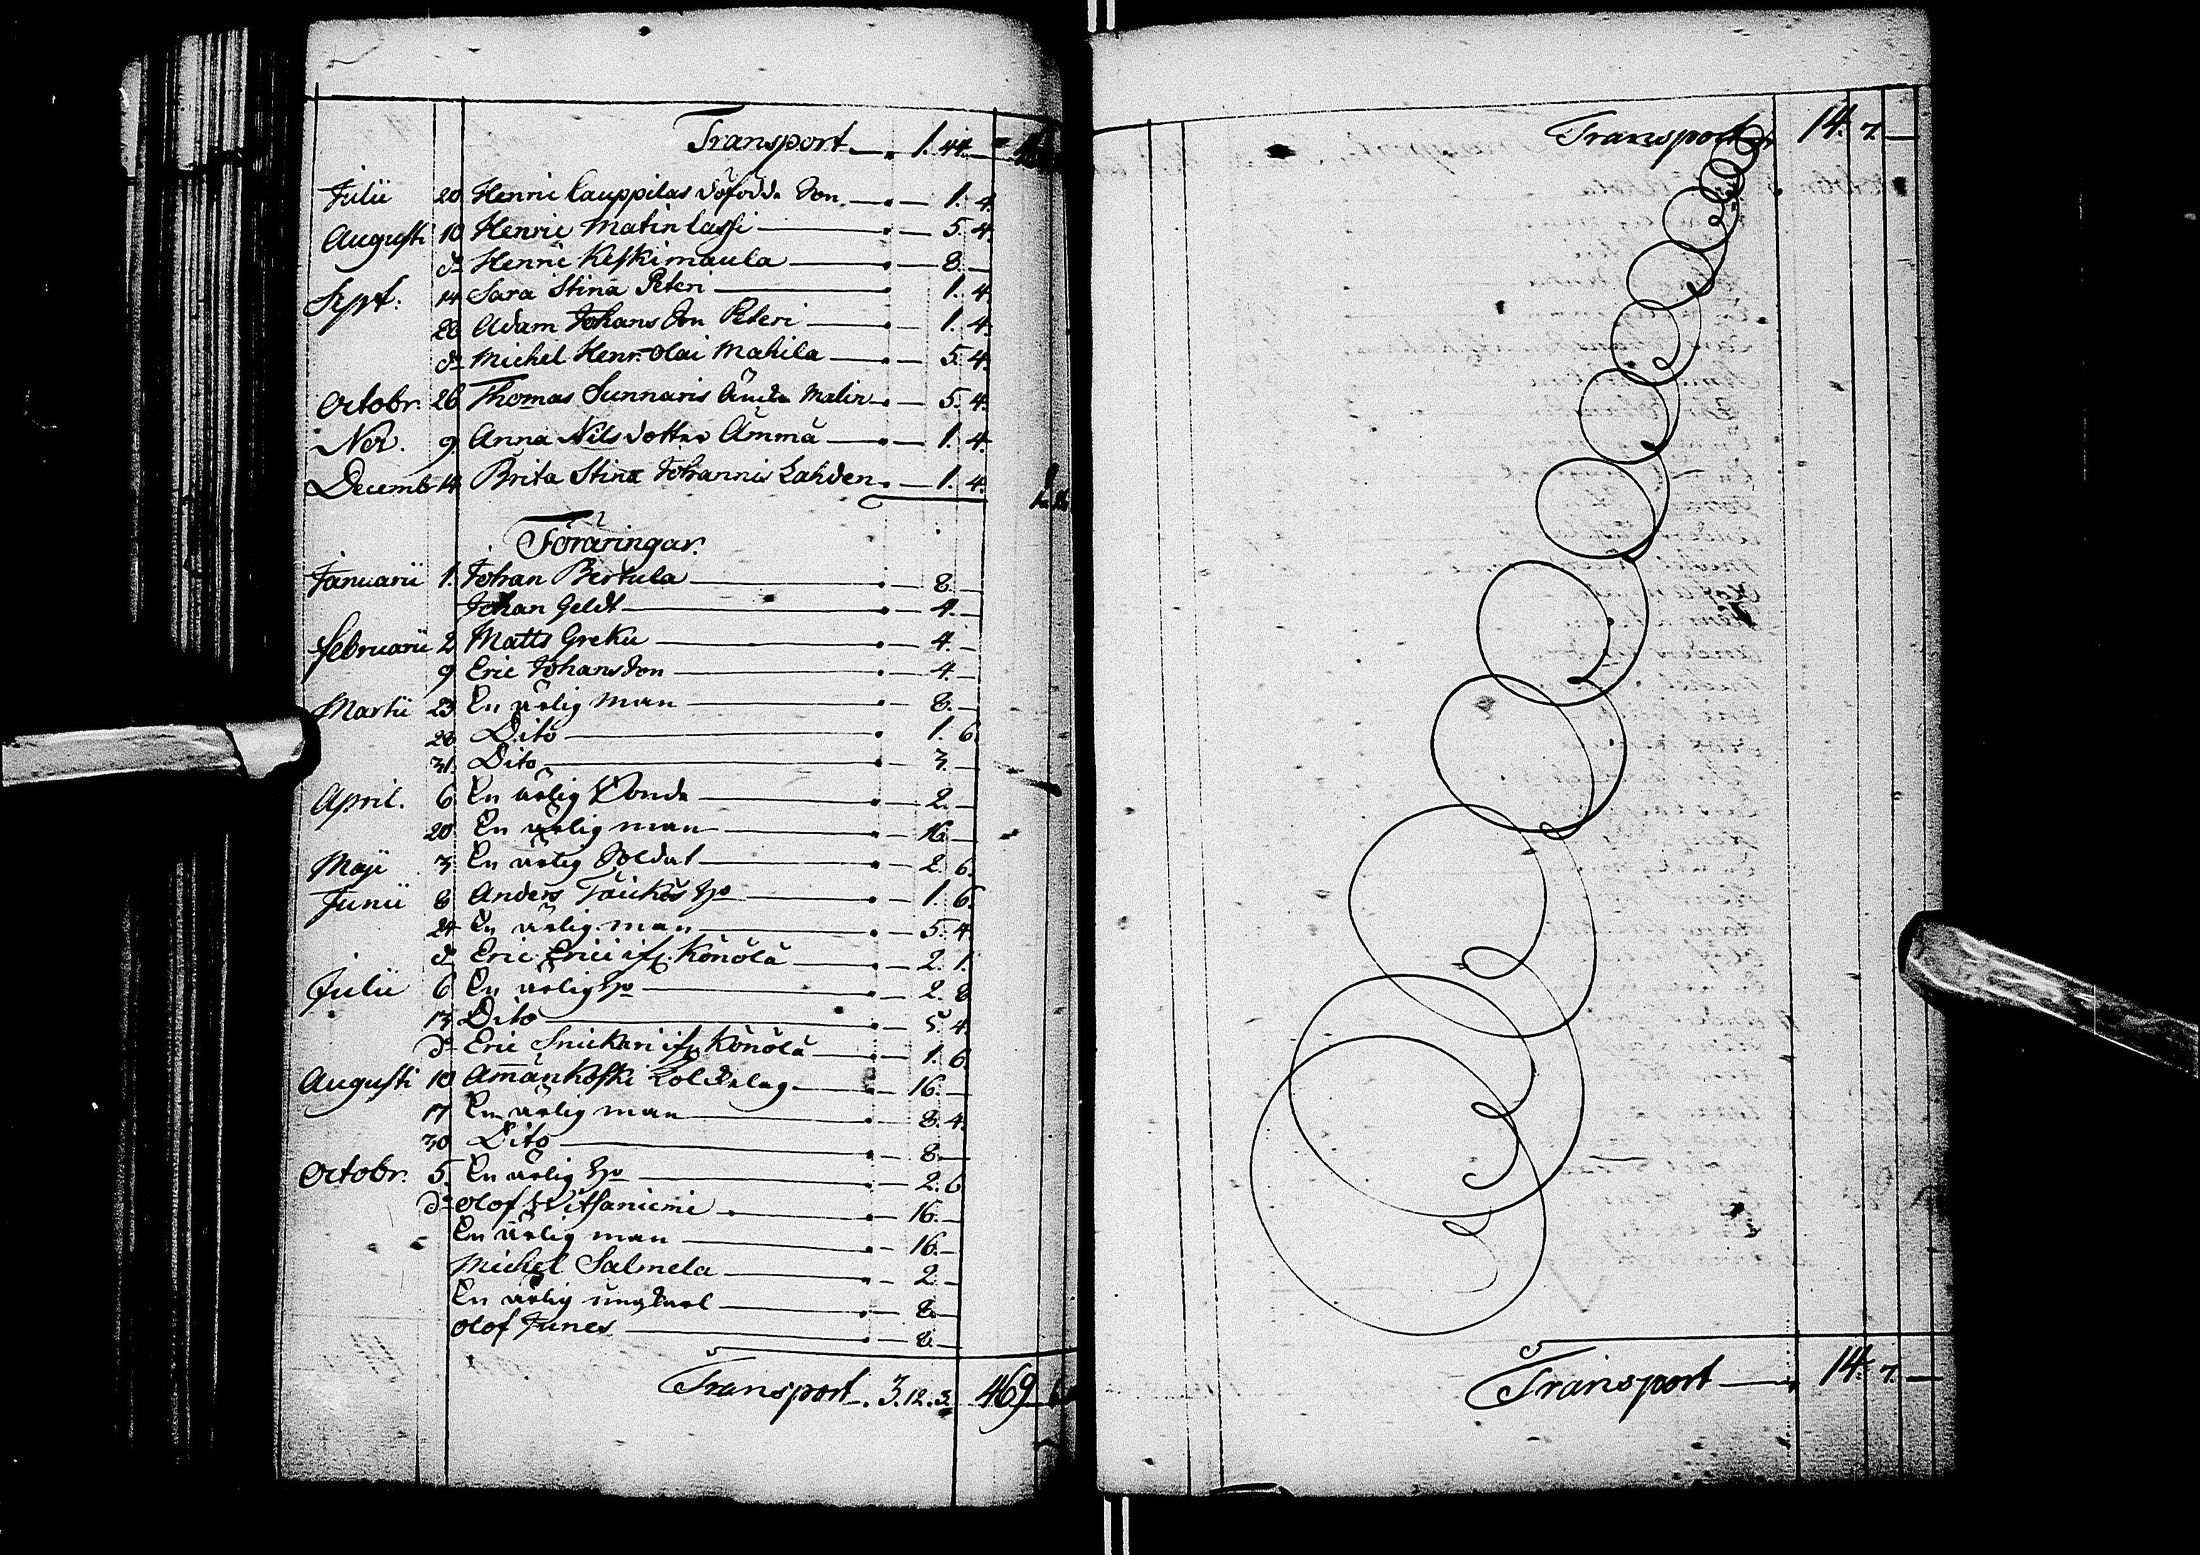 Transport 1. 44.
Julii 20 Henric Lauppilas döfödde Son 1. 4.
Augusti 10 Henric Matinlassi 5. 4.
do Henric Keskimaula 8. —
Sept. 14 Sara Stina Peteri 1. 4.
28 Adam Johansson Peteri 1. 4.
do Michel Henr. Olai Mahila 5. 4.
Octobr. 26 Thomas Sunnaris Malin 5. 4.
Nov. 9 Anna Nilsdotter Ämmä 1. 4.
Decemb. 14 Brita Stina Johannis Lahden 1. 4.
Föräringar.
Januarii 1. Johan Bertula 8. —
Johan Geldt 4. —
Februarii 2 Matts Greku 4. —
9 Eric Johansson 4. —
Martii 23 En ärlig man 8. —
28 Dito 1. 6.
31. Dito 3. —
April. 6 En ärlig Bonde 2. —
20 En ärlig man 16 —
Maji 3 En ärlig Soldat 2. 6.
Junii 8 Anders 1. 6.
24 En ärlig man 5. 4.
do Eric Erici ifr. Könölä 2. 1.
Julii 6 En ärlig 2. 8
13 Dito 5. 4.
do Eric Snickari ifr. Könölä 1. 6.
Augusti 10 Ämänkoski Bolckelag 16. —
17 En ärlig man 8. 4.
30 Dito 8. —
Octobr. 5. En ärlig 2. 6
do Olof Witsaniemi 16. —
En ärlig man 16. —
Michel Salmela 2. —
En ärlig ungkarl 8. —
Olof Junes 8. —
Transport 3. 12. 3. 469
Transport 14. 7. —
Transport 14. 7. —